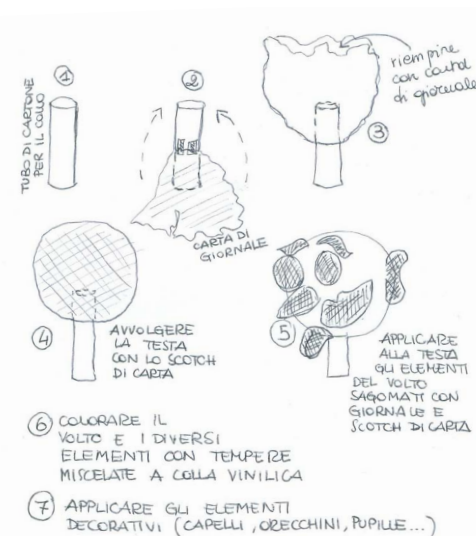 1
TUBO DI CARTONE
PER IL COLLO
2
CARTA DI
GIORNALE
riempire
con carta
di giornale
3
4
AVVOLGERE
LA TESTA
CON LO SCOTCH
DI CARTA
5
APPLICARE
ALLA TESTA
GLI ELEMENTI
DEL VOLTO
SAGOMATI CON
GIORNALE E
SCOTCH DI CARTA
6 COLORARE IL
VOLTO E I DIVERSI
ELEMENTI CON TEMPERE
MISCELATE A COLLA VINILICA
7 APPLICARE GLI ELEMENTI
DECORATIVI (CAPELLI, ORECCHINI, PUPILLE...)